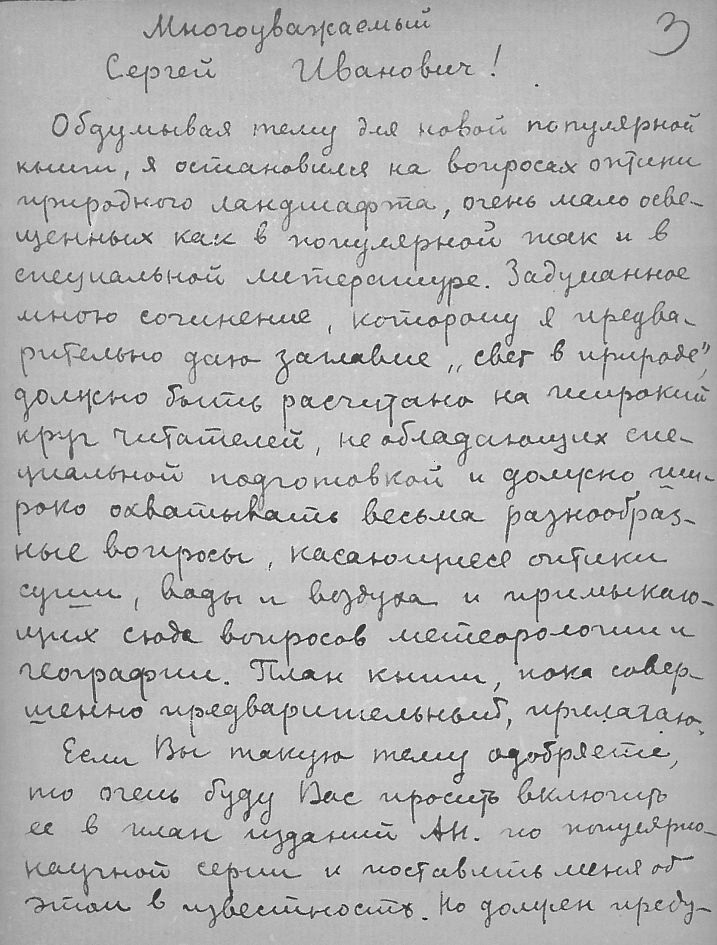 3
Многоуважаемый
Сергей Иванович!
Обдумывая тему для новой популярной
книги, я остановился на вопросах оптики
природного ландшафта, очень мало осве-
щенных как в популярной так и в
специальной литературе. Задуманное
мною сочинение, которому я предва-
рительно даю заглавие „свет в природе",
должно быть расчитано на широкий
круг читателей, не обладающих спе-
циальной подготовкой и должно ши-
роко охватывать весьма разнообраз-
ные вопросы, касающиеся оптики
суши, воды и воздуха и примыкаю-
щих сюда вопросов метеорологии и
географии. План книги, пока совер-
шенно предварительный, прилагаю.
Если Вы такую тему одобряете,
то очень буду Вас просить включить
ее в план изданий АН. по популярно-
научной серии и поставить меня об
этом в известность. Но должен преду-